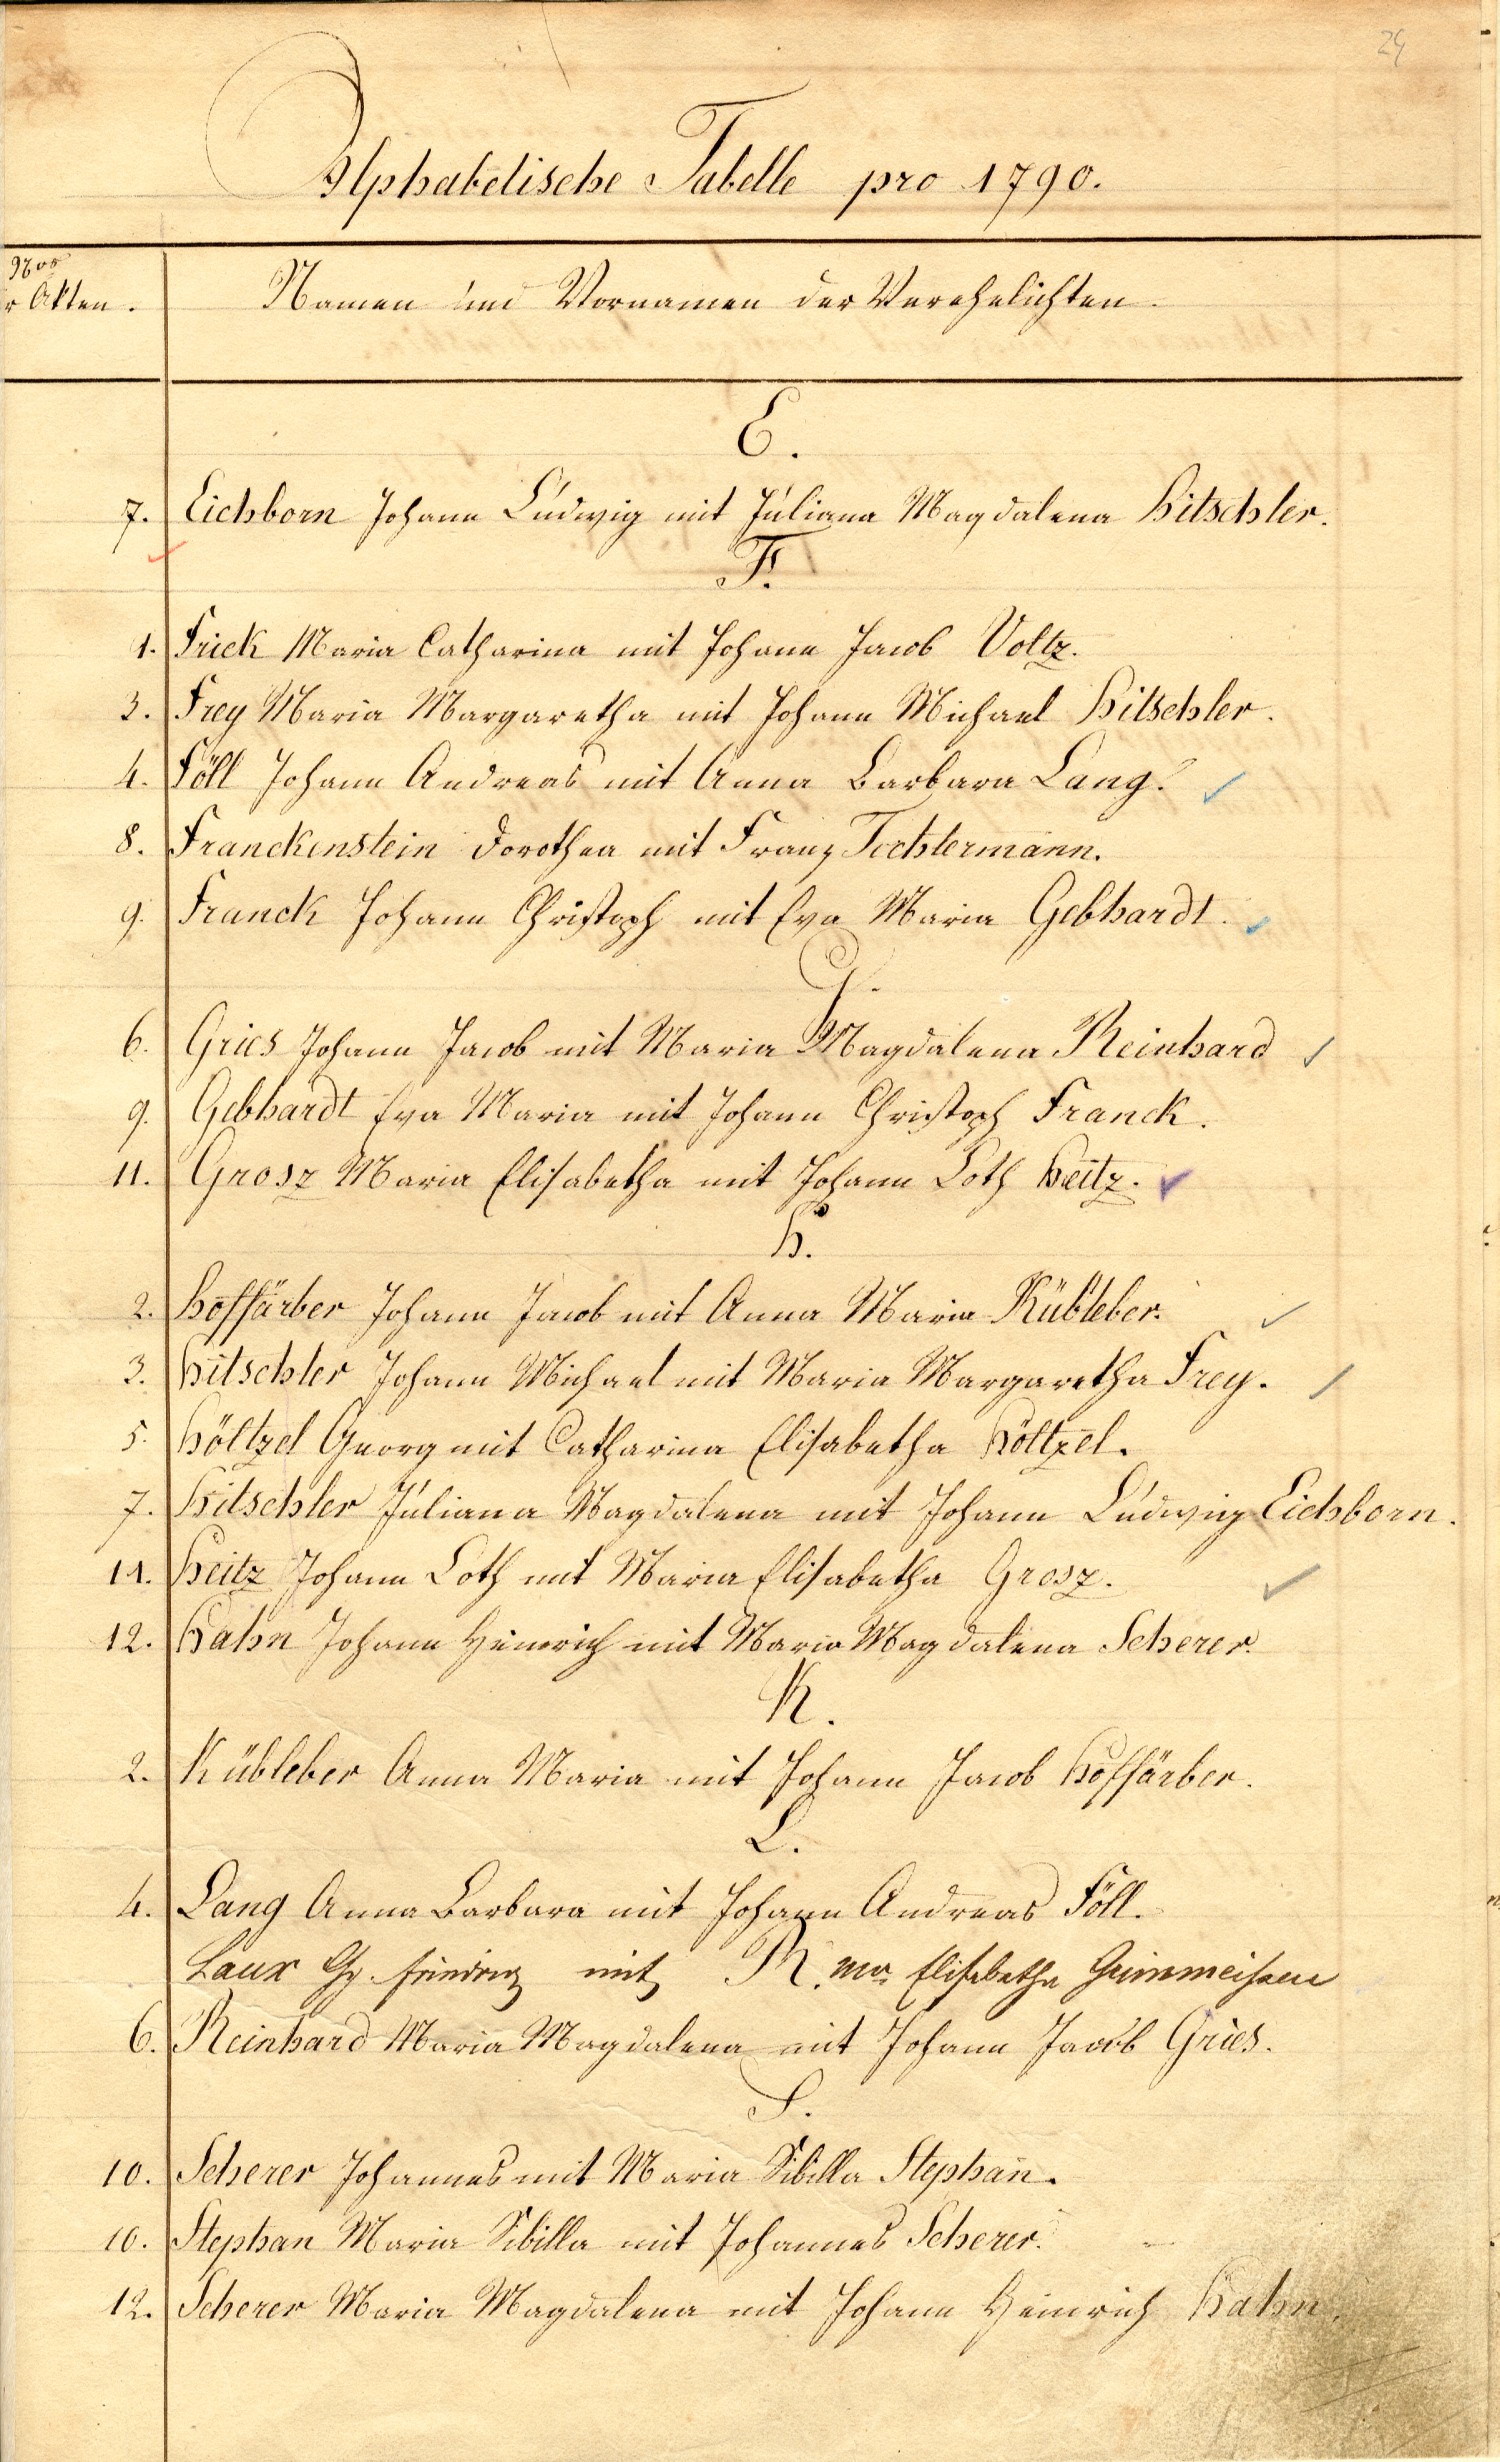 24
Alphabetische Tabelle pro 1790.
Nro
r Akten.
Namen und Vornamen der Verehelichten.
E.
7. Eichborn Johann Ludwig mit Juliana Magdalena Hitschler.
F.
1. Frick Maria Catharina mit Johann Jacob Voltz.
3. Frey Maria Margaretha mit Johann Michael Hitschler.
4. Föll Johann Andreas mit Anna Barbara Lang.
8. Franckenstein Dorothea mit Franz Tochtermann.
9. Franck Johann Christoph mit Eva Maria Gebhardt.
G.
6. Gries Johann Jacob mit Maria Magdalena Reinhard
9. Gebhardt Eva Maria mit Johann Christoph Franck.
11. Grosz Maria Elisabetha mit Johann Loth Heitz.
H.
2. Hoffärber Johann Jacob mit Anna Maria Kübleber.
3. Hitschler Johann Michael mit Maria Margaretha Frey.
5. Höltzel Georg mit Catharina Elisabetha Höltzel.
7. Hitschler Juliana Magdalena mit Johann Ludwig Eichborn.
11. Heitz Johann Loth mit Maria Elisabetha Grosz.
12. Hahn Johann Heinrich mit Maria Magdalena Scherer.
K.
2. Kübleber Anna Maria mit Johann Jacob Hoffärber.
L.
4. Lang Anna Barbara mit Johann Andreas Föll.
Laux Gg. Friedrich mit Mar. Elisabetha Grimmeisen
R.
6. Reinhard Maria Magdalena mit Johann Jacob Gries.
S.
10. Scherer Johannes mit Maria Sibilla Stephan.
10. Stephan Maria Sibilla mit Johannes Scherer.
12. Scherer Maria Magdalena mit Johann Heinrich Hahn.